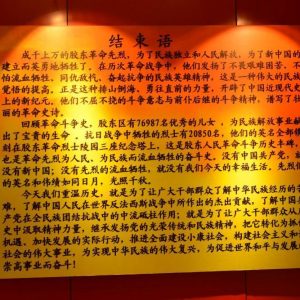 结束语
成千上万的胶东革命先烈，为了民族独立和人民解放，为了新中国的
建立而英勇地牺牲了。在历次革命战争中，他们发扬了不畏艰难困苦、不
怕流血牺牲、同仇敌忾、奋起抗争的民族英雄精神，这是一种伟大的民族
觉悟的提高，正是这种排山倒海、勇往直前的力量，开辟了中国近现代史
上的新纪元。他们不屈不挠的斗争意志与前仆后继的斗争精神，谱写了壮
丽的革命史诗。
回顾革命斗争史，胶东区有76987名优秀的儿女，为民族解放事业献
出了宝贵的生命，抗日战争中牺牲的烈士有20850名，他们的英名全部镌
刻在胶东革命烈士陵园三座纪念塔上。这是胶东人民革命斗争历史丰碑，
也是革命先烈为人民、为民族而流血牺牲的奋斗史。没有中国共产党，没
有新中国，没有先烈的流血牺牲，就没有我们今天的幸福生活。先烈们
的英名和伟绩如同日月，光照千秋。
今天我们重温历史，就是为了让广大干部群众了解中华民族经历的苦
难，了解中国人民在世界反法西斯战争中所作出的杰出贡献，了解中国共
产党在全民族团结抗战中的中流砥柱作用；就是为了让广大干部群众从历
史中汲取精神力量，继承发扬党的光荣传统和民族精神，把它转化为抓住
机遇、加快发展的实际行动，推进全面建设小康社会，构建社会主义和谐
社会的伟大事业，为实现中华民族的伟大复兴，为促进世界和平与发展的
崇高事业而奋斗！